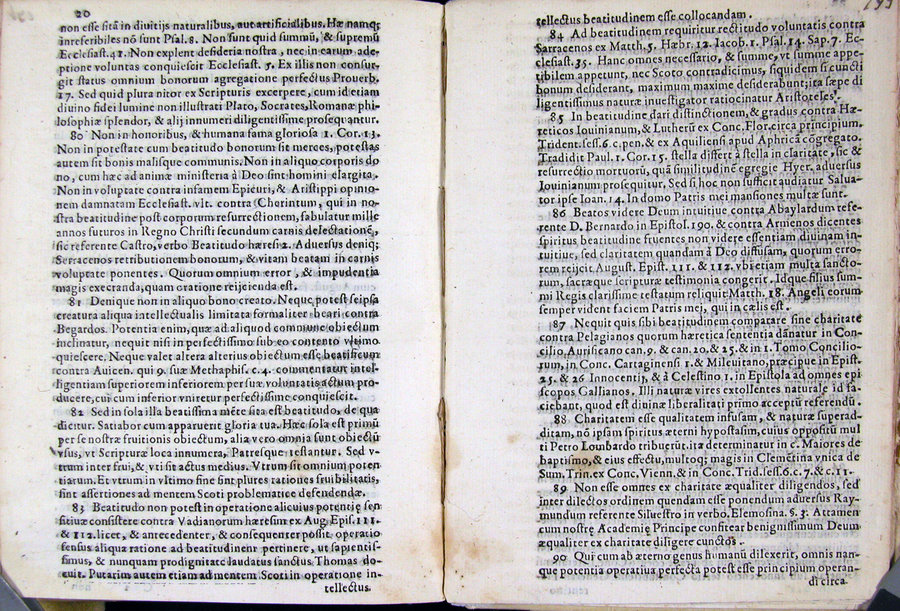 20
non esse sitã in diuitijs naturalibus, aut artificialibus. Hæ namq;
inreferibiles nõ sunt Psal. 8. Non sunt quid summũ, & supremũ
Ecclesiast. 41. Non explent desideria nostra, nec in earum ade-
ptione voluntas conquiescit Ecclesiast. 5. Ex illis non consur-
git status omnium bonorum agregatione perfectus Prouerb.
17. Sed quid plura nitor ex Scripturis excerpere, cum id etiam
diuino fidei lumine non illustrati Plato, Socrates, Romanæ phi-
losophiæ splendor, & alij innumeri diligentissime prosequantur.
80 Non in honoribus, & humana fama gloriosa 1. Cor. 13.
Non in potestate cum beatitudo bonorum sit merces, potestas
autem sit bonis malisque communis. Non in aliquo corporis do
no, cum hæc ad animæ ministeria à Deo sint homini elargita.
Non in voluptate contra insamem Epicuri, & Aristippi opinio-
nem damnatam Ecclesiast. vlt. contra Cherintum, qui in no-
stra beatitudine post corporum resurrectionem, fabulatur mille
annos futuros in Regno Christi secundum carnis delectationẽ,
sic referente Castro, verbo Beatitudo hæresi 2. Aduersus deniq;
Serracenos retributionem bonorum, & vitam beatam in carnis
voluptate ponentes. Quorum omnium error, & impudentia
magis execranda, quam oratione reijcienda est.
81 Denique non in aliquo bono creato. Neque potest seipsa
creatura aliqua intellectualis limitata formaliter beari contra
Begardos. Potentia enim, quæ ad aliquod commune obiectum
inclinatur, nequit nisi in perfectissimo sub eo contento vltimo
quiescere. Neque valet altera alterius obiectum esse beatificum
contra Auicen. qui 9. suæ Methaphis. c. 4. commentatur intel-
ligentiam superiorem inferiorem per suæ voluntatis actum pro-
ducere, cui cum inferior vniretur perfectissime conquiescit.
82 Sed in sola illa beatissima mẽte sita est beatitudo, de qua
dicitur. Satiabor cum apparuerit gloria tua. Hæc sola est primũ
per se nostræ fruitionis obiectum, alia vero omnia sunt obiectũ
vsus, vt Scripturæ loca innumera, Patresque testantur. Sed v-
trum inter frui, & vti sit actus medius. Vtrum sit omnium poten
tiarum. Et vtrum in vltimo fine sint plures rationes fruibilitatis,
sint assertiones ad mentem Scoti problematice defendendæ.
83 Beatitudo non potest in operatione alicuius potentię sen
sitiuæ consistere contra Vadianorum hæresim ex Aug. Epis. 111.
& 112. licet, & antecedenter, & consequenter possit operatio
sensus aliqua ratione ad beatitudinem pertinere, vt sapientis-
simus, & nunquam prodignitate laudatus sanctus Thomas do-
cuit. Putarim autem etiam ad mentem Scoti in operatione in-
tellectus
tellectus beatitudinem esse collocandam.
84 Ad beatitudinem requiritur rectitudo voluntatis contra
Sarracenos ex Matth. 5. Hæbr. 12. Iacob. 1. Psal. 14. Sap. 7. Ec-
clesiast. 35. Hanc omnes necessario, & summe, vt summe appe-
tibilem appetunt, nec Scoto contradicimus, siquidem si cuncti
bonum desiderant, maximum maxime desiderabunt; ita sæpe di
ligentissimus naturæ inuestigator ratiocinatur Aristoteles.
85 In beatitudine dari distinctionem, & gradus contra Hæ-
reticos Iouinianum, & Lutherũ ex Conc. Flor. circa principium.
Trident. sess. 6. c. pen. & ex Aquiliensi apud Aphricã cõgregato.
Tradidit Paul. 1. Cor. 15. stella differt à stella in claritate, sic &
resurrectio mortuorũ, quã similitudinẽ egregie Hyer. aduersus
Iouinianum prosequitur. Sed si hoc non sufficit audiatur Salua-
tor ipse Ioan. 14. In domo Patris mei mansiones multæ sunt.
86 Beatos videre Deum intuitiue contra Abaylardum refe-
rente D. Bernardo in Epistol. 190. & contra Armenos dicentes
spiritus beatitudine fruentes non videre essentiam diuinam in-
tuitiue, sed claritatem quandam à Deo diffusam, quorum erro-
rem reijcit August. Epist. 111. & 112. vbi etiam multa sancto-
rum, sacræque scripturæ testimonia congerit. Idque filius sum-
mi Regis clarissime testatum reliquit Matth. 18. Angeli eorum
semper vident faciem Patris mei, qui in cælis est.
87 Nequit quis sibi beatitudinem comparare sine charitate
contra Pelagianos quorum hæretica sententia dãnatur in Con-
cilio Aurificano can. 9. & can. 20. & 25. & in 1. Tomo Concilio-
rum, in Conc. Cartaginensi 1. & Mileuitano, præcipue in Epist.
25. & 26 Innocentij, & à Celestino 1. in Epistola ad omnes epi
scopos Gallianos. Illi naturæ vires extollentes naturale id fa-
ciebant, quod est diuinæ liberalitati primo acceptũ referendũ.
88 Charitatem esse qualitatem infusam, & naturæ superad-
ditam, nõ ipsam spiritus æterni hypostasim, cuius oppositũ mul
ti Petro Lombardo tribuerũt. ita determinatur in c. Maiores de
baptismo, & eius effectu, multoq; magis in Clemẽtina vnica de
Sum. Trin. ex Conc. Vienn. & in Conc. Trid. sess. 6. c. 7. & c. 11.
89 Non esse omnes ex charitate æqualiter diligendos, sed
inter dilectos ordinem quendam esse ponendum aduersus Ray-
mundum referente Siluestro in verbo, Elemosina. §. 3. Attamen
cum nostre Academię Principe confitear benignissimum Deum
æqualiter ex charitate diligere cunctos.
90 Qui cum ab æterno genus humanũ dilexerit, omnis nan-
que potentia operatiua perfecta potest esse principium operan-
di circa